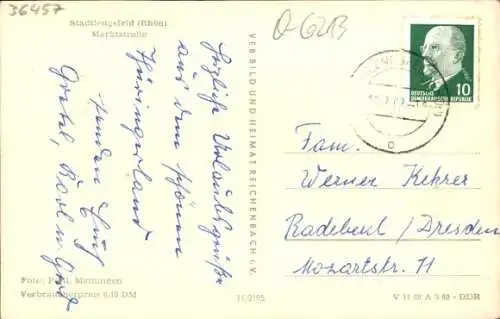 36457
Stadtlengsfeld (Rhön)
Marktstraße
O-6213
DEUTSCHE
DEMOKRATISCHE REPUBLIK
10
Herzliche Urlaubsgrüße
aus dem schönen
Thüringerland
senden Euch
Gretel, Karl u. Gerd
VERBILD UND HEIMAT REICHENBACH i. V.
Fam.
Werner Kehrer
Radebeul / Dresden
Mozartstr. 11
Foto: Meiningen
Verbraucherpreis 0,15 DM
11/2195
V 11 28 A 3.60 - DDR